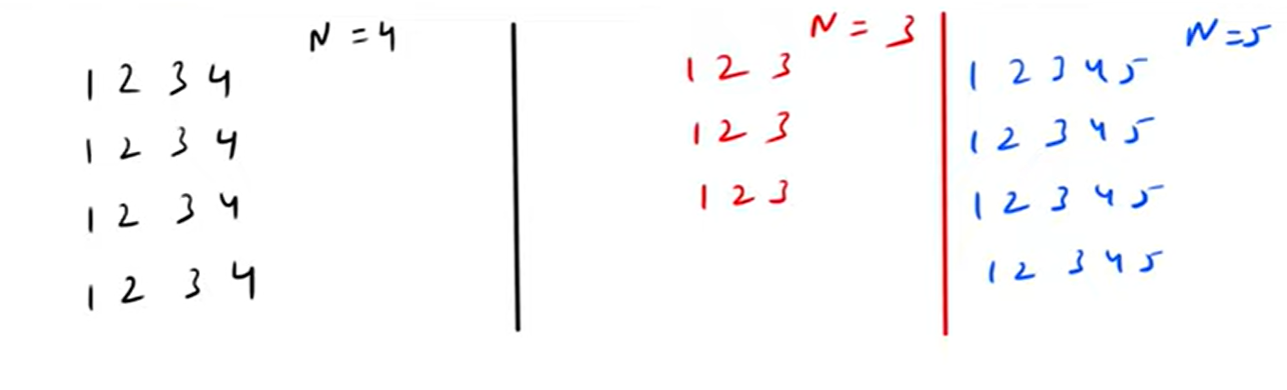 N = 4
1 2 3 4
1 2 3 4
1 2 3 4
1 2 3 4
N = 3
1 2 3
1 2 3
1 2 3
N = 5
1 2 3 4 5
1 2 3 4 5
1 2 3 4 5
1 2 3 4 5